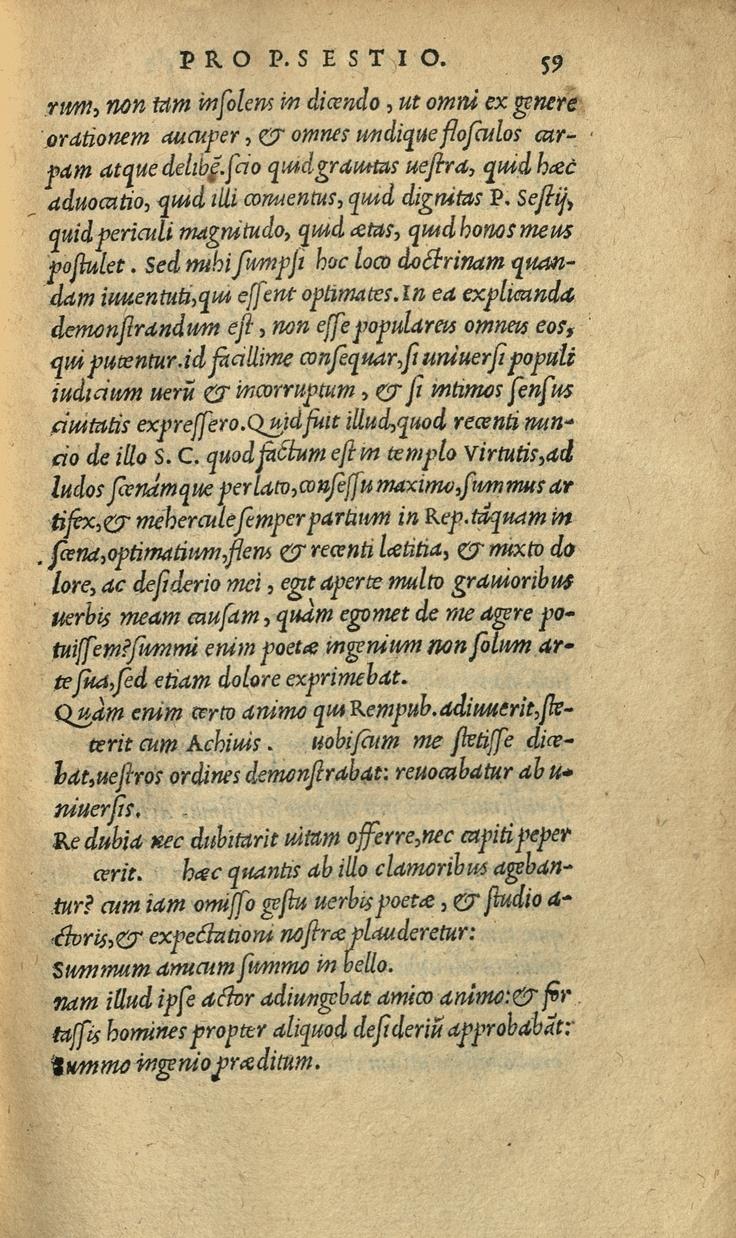 PRO P. SESTIO. 59
rum, non tam insolens in dicendo, ut omni ex genere
orationem aucuper, & omnes undique flosculos car-
pam atque delibẽ. scio quid grauitas uestra, quid hæc
aduocatio, quid illi conuentus, quid dignitas P. Sestij,
quid periculi magnitudo, quid ætas, quid honos meus
postulet. Sed mihi sumpsi hoc loco doctrinam quan-
dam iuuentuti, qui essent optimates. In ea explicanda
demonstrandum est, non esse populareis omneis eos,
qui putentur. id facillime consequar, si uniuersi populi
iudicium uerũ & incorruptum, & si intimos sensus
ciuitatis expressero. Quid fuit illud, quod recenti nun-
cio de illo S. C. quod factum est in templo Virtutis, ad
ludos scenámque perlato, consessu maximo, summus ar
tifex, & mehercule semper partium in Rep. tãquam in
scena, optimatium, flens & recenti lætitia, & mixto do
lore, ac desiderio mei, egit aperte multo grauioribus
uerbis meam causam, quàm egomet de me agere po-
tuissem? summi enim poetæ ingenium non solum ar-
te sua, sed etiam dolore exprimebat.
Quàm enim certo animo qui Rempub. adiuuerit, ste-
terit cum Achiuis. uobiscum me stetisse dice-
bat, uestros ordines demonstrabat: reuocabatur ab u-
niuersis.
Re dubia nec dubitarit uitam offerre, nec capiti peper
cerit. hæc quantis ab illo clamoribus ageban-
tur? cum iam omisso gestu uerbis poetæ, & studio a-
ctoris, & expectationi nostræ plauderetur:
Summum amicum summo in bello.
nam illud ipse actor adiungebat amico animo: & for
tassis homines propter aliquod desideriũ approbabãt:
Summo ingenio præditum.